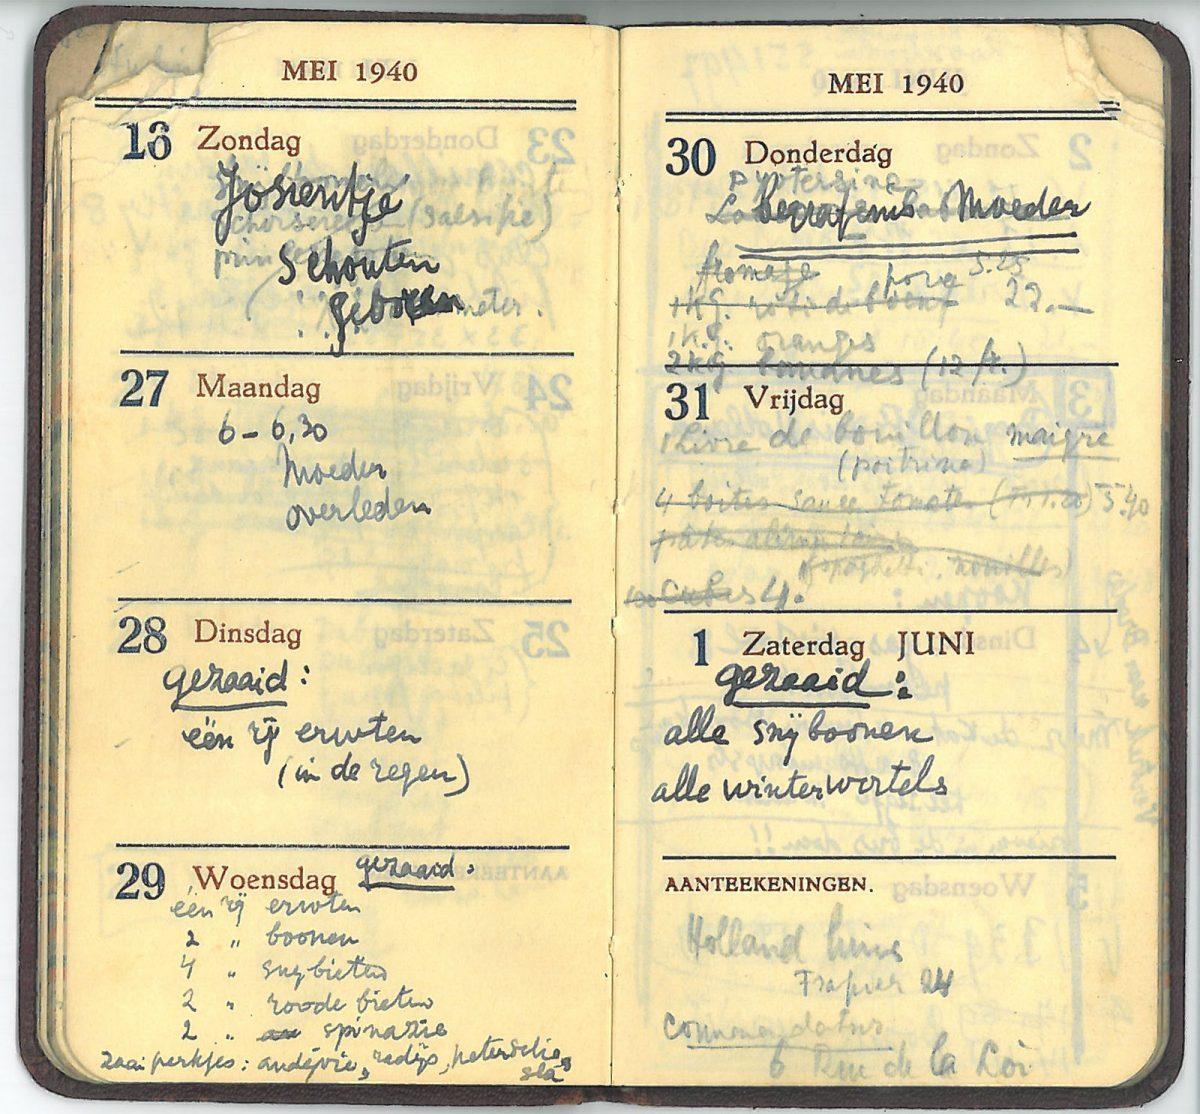 MEI 1940
Zondag
Josientje
schorseneer (salsifie)
Schouten
geboren
27 Maandag
6 - 6,30
Moeder
overleden
28 Dinsdag
gezaaid:
één rij erwten
(in de regen)
29 Woensdag gezaaid:
één rij erwten
2 " boonen
4 " snybieten
2 " roode bieten
2 " spinazie
zaai perkjes: andijvie, radijs, peterselie,
sla
MEI 1940
30 Donderdag
begrafenis Moeder
fromage porc 5.25
1 KG. roti de boeuf 22.—
1 KG. oranges
2 KG. bananes (12 fr.)
31 Vrijdag
1 Livre de bouillon maigre
(poitrine)
4 boites sauce tomate 5.40
pâtes
spaghetti, nouilles)
Cubes 4.
1 Zaterdag JUNI
gezaaid:
alle snijboonen
alle winterwortels
AANTEEKENINGEN.
Holland huis
24
commandatur
6 Rue de la Loi